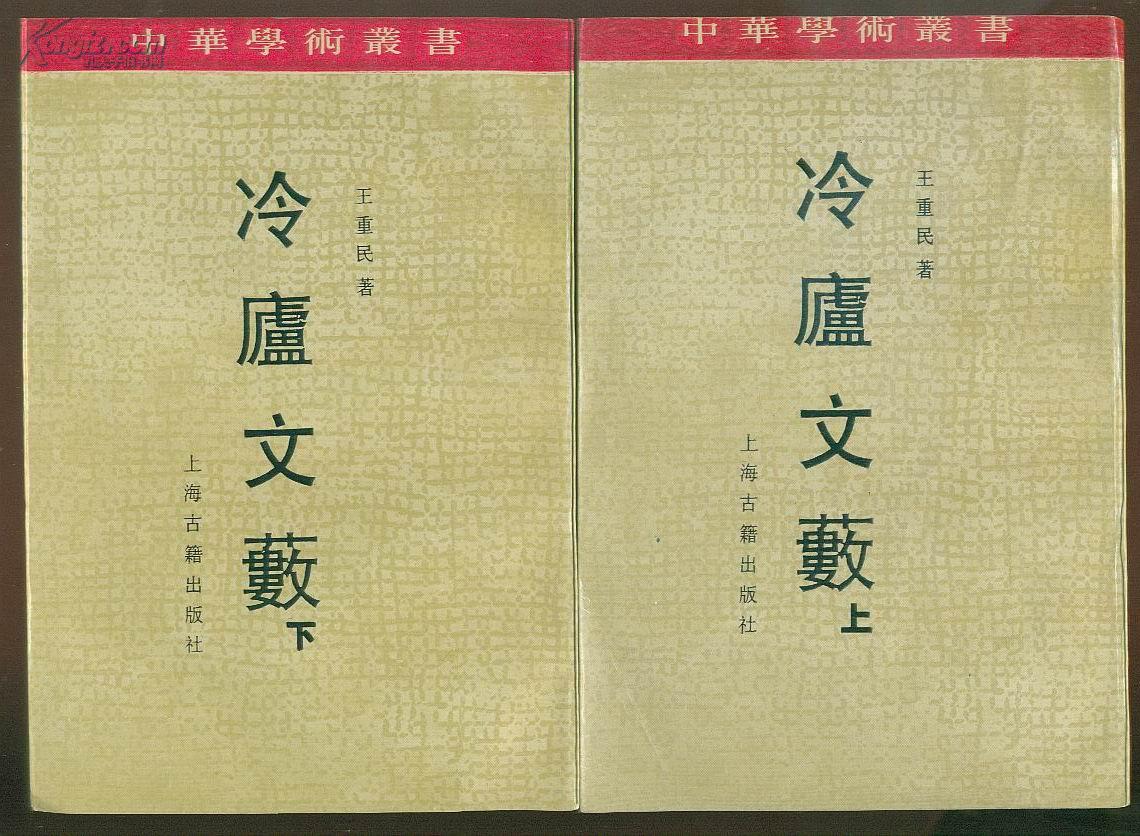 中華學術叢書
王重民著
冷廬文藪上
上海古籍出版社
中華學術叢書
王重民著
冷廬文藪下
上海古籍出版社
Kongfz.com